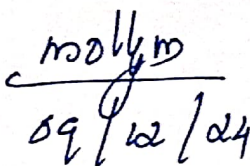 mollym
09/12/24